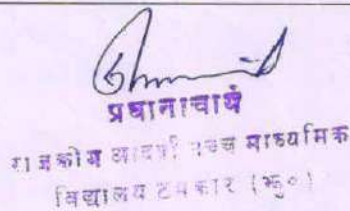 प्रधानाचार्य
राजकीय आदर्श उच्च माध्यमिक
विद्यालय (झु०)